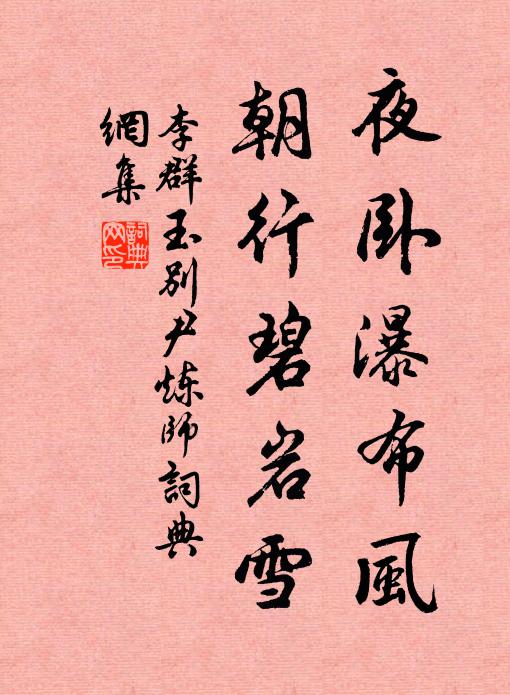 夜卧瀑布風
朝行碧岩雪
李群玉别尹炼師詞典
網集
詞典
网印